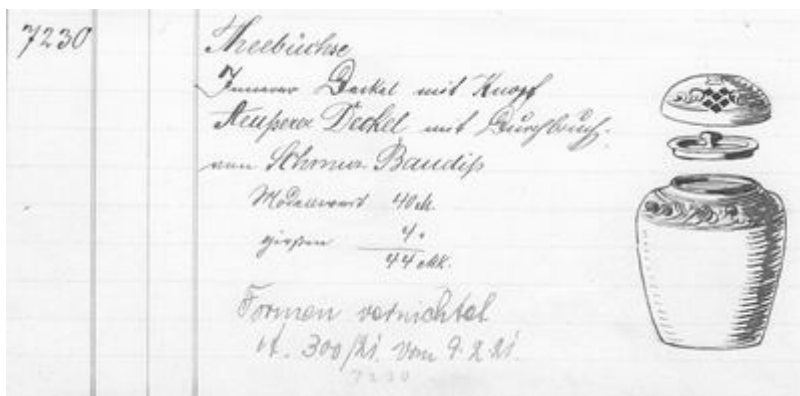 7230
Theebüchse
Innerer Deckel mit Knopf
Aeußerer Deckel mit Durchbruch,
von Schmuz Baudiß
Modellwert 40 M.
gießen 4 "
44 Mk.
Formen vernichtet
lt. 300/21. vom 9.2.21.
7230